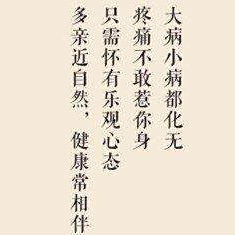 大病小病都化无
疼痛不敢惹你身
只需怀有乐观心态
多亲近自然，健康常相伴